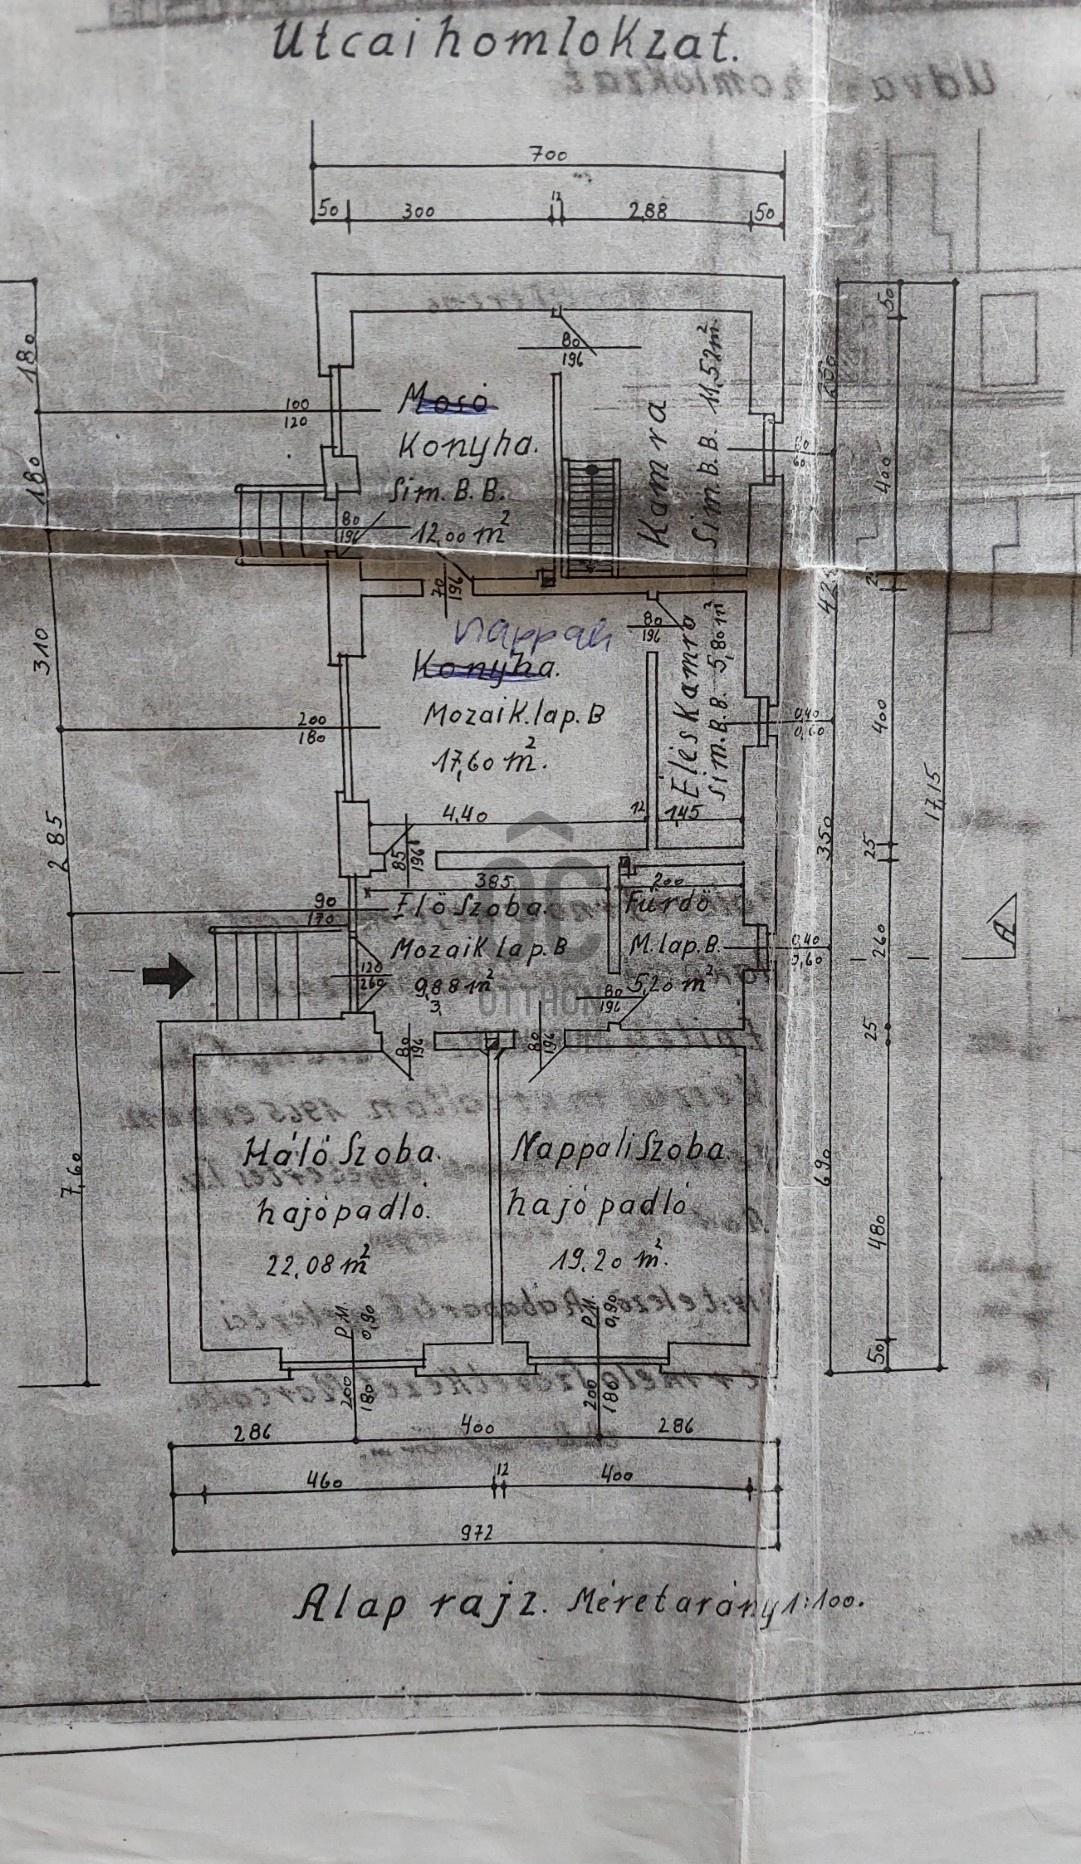 Utcai homlokzat.
700
50 300 12 288 50
80
196
Mosó
Konyha.
Sim. B. B.
12,00 m²
Kamra
Sim. B. B. 11,52 m²
100
120
80
196
70
196
Nappali
Konyha.
Mozaik. lap. B
17,60 m².
80
196
Éléskamra
Sim. B. B. 5,80 m²
200
180
0,40
0,60
4,40 12 145
85
196
385 200
90
170
Előszoba.
Mozaik lap. B
9,88 m²
Fürdő
M. lap. B.
5,20 m²
120
260
80
196
0,40
0,60
ÓC
OTTHON
80
196
80
196
Háló Szoba.
hajópadló.
22,08 m²
Nappali Szoba
hajó padló
19,20 m².
P.M.
0,90
P.M.
0,90
200
180
200
180
286 400 286
460 12 400
972
180
180
310
285
7,60
250
425
350
690
50
400
25
400
25
260
25
480
50
17,15
A
Alap rajz. Méretarány 1:100.